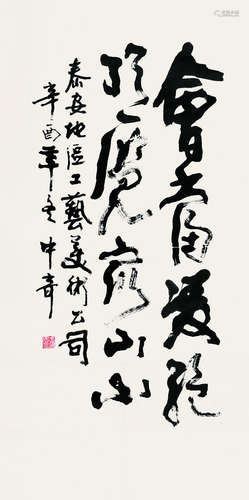 會當凌絕
頂一覽眾山小
泰安地區工藝美術公司
辛酉年冬 中奇